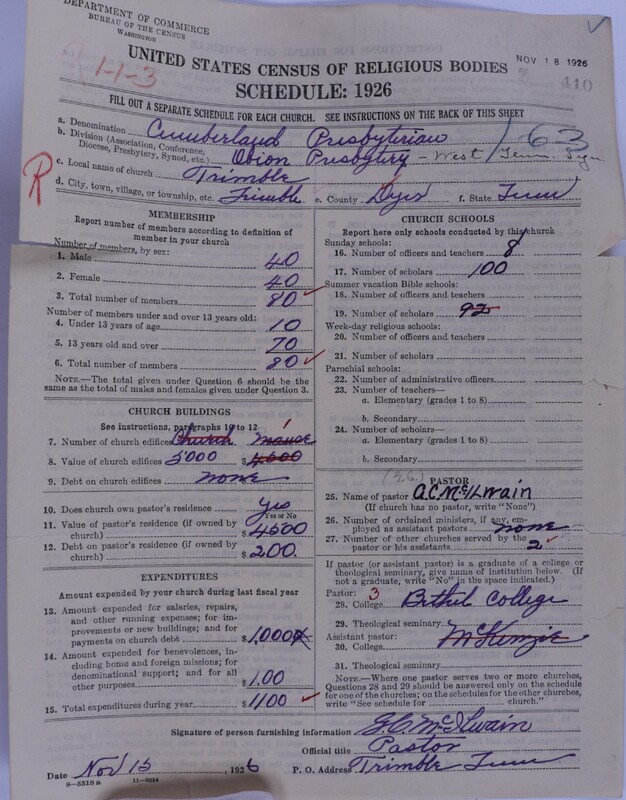 DEPARTMENT OF COMMERCE
BUREAU OF THE CENSUS
WASHINGTON
NOV 18 1926
410
1-1-3
UNITED STATES CENSUS OF RELIGIOUS BODIES
SCHEDULE: 1926
FILL OUT A SEPARATE SCHEDULE FOR EACH CHURCH. SEE INSTRUCTIONS ON THE BACK OF THIS SHEET
163
a. Denomination Cumberland Presbyterian
b. Division (Association, Conference, Diocese, Presbytery, Synod, etc.) Obion Presbytery - West Tenn. Syn
R
c. Local name of church Trimble
d. City, town, village, or township, etc. Trimble e. County Dyer f. State Tenn
MEMBERSHIP
Report number of members according to definition of member in your church
Number of members, by sex:
1. Male 40
2. Female 40
3. Total number of members 80
Number of members under and over 13 years old:
4. Under 13 years of age 10
5. 13 years old and over 70
6. Total number of members 80
NOTE.—The total given under Question 6 should be the same as the total of males and females given under Question 3.
CHURCH BUILDINGS
See instructions, paragraphs 10 to 12
7. Number of church edifices Church manse
8. Value of church edifices 5000 $4500
9. Debt on church edifices none
10. Does church own pastor's residence yes
Yes or No
11. Value of pastor's residence (if owned by church) $4500
12. Debt on pastor's residence (if owned by church) $200.
EXPENDITURES
Amount expended by your church during last fiscal year
13. Amount expended for salaries, repairs, and other running expenses; for improvements or new buildings; and for payments on church debt $1,000
14. Amount expended for benevolences, including home and foreign missions; for denominational support; and for all other purposes $100
15. Total expenditures during year $1100
CHURCH SCHOOLS
Report here only schools conducted by this church
Sunday schools:
16. Number of officers and teachers 8
17. Number of scholars 100
Summer vacation Bible schools:
18. Number of officers and teachers
19. Number of scholars 92
Week-day religious schools:
20. Number of officers and teachers
21. Number of scholars
Parochial schools:
22. Number of administrative officers
23. Number of teachers—
a. Elementary (grades 1 to 8)
b. Secondary
24. Number of scholars—
a. Elementary (grades 1 to 8)
b. Secondary
PASTOR
25. Name of pastor A.C. McIlwain
(If church has no pastor, write "None")
26. Number of ordained ministers, if any, employed as assistant pastors none
27. Number of other churches served by the pastor or his assistants 2
If pastor (or assistant pastor) is a graduate of a college or theological seminary, give name of institution below. (If not a graduate, write "No" in the space indicated.)
Pastor: 3
28. College Bethel College
29. Theological seminary
Assistant pastor:
30. College McKenzie
31. Theological seminary
NOTE.—Where one pastor serves two or more churches, Questions 28 and 29 should be answered only on the schedule for one of the churches; on the schedules for the other churches, write "See schedule for church."
Signature of person furnishing information McIlwain
Official title Pastor
Date Nov 15, 1926 P. O. Address Trimble Tenn